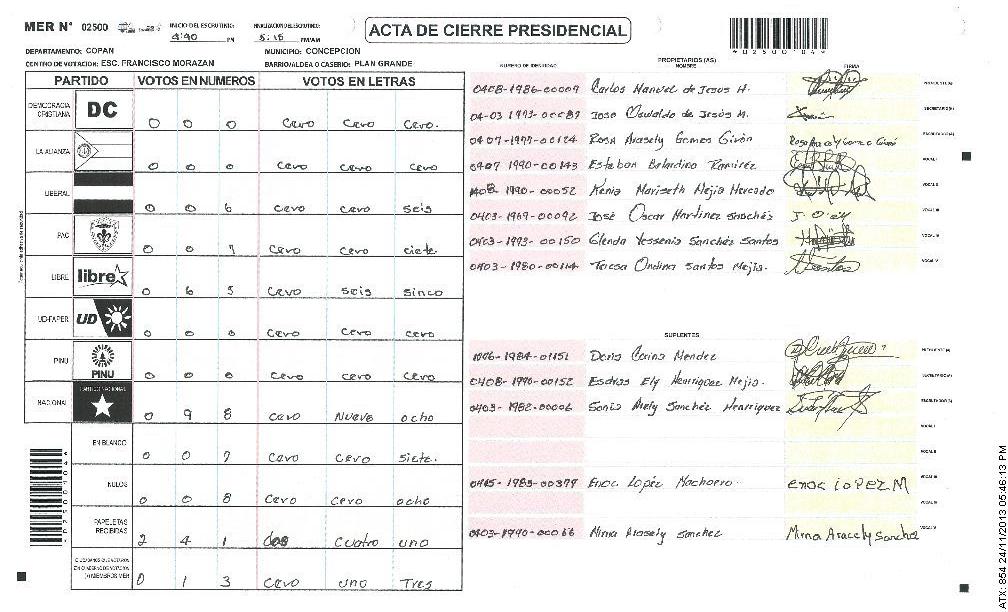 MER Nº 02500 INICIO DEL ESCRUTINIO: 4:40 PM FINALIZACION DEL ESCRUTINIO: 5:15 PM/AM
ACTA DE CIERRE PRESIDENCIAL
DEPARTAMENTO: COPAN MUNICIPIO: CONCEPCION
CENTRO DE VOTACION: ESC. FRANCISCO MORAZAN BARRIO/ALDEA O CASERIO: PLAN GRANDE
PARTIDO VOTOS EN NUMEROS VOTOS EN LETRAS
DEMOCRACIA CRISTIANA DC 0 0 0 Cero Cero Cero.
LA ALIANZA 0 0 0 Cero Cero Cero
LIBERAL 0 0 6 Cero Cero seis
PAC 0 0 7 Cero Cero ciete
LIBRE libre 0 6 5 Cero seis sinco
UD-FAPER UD 0 0 0 Cero Cero Cero
PINU PINU 0 0 0 Cero Cero Cero
NACIONAL 0 9 8 Cero Nueve ocho
EN BLANCO 0 0 7 Cero Cero siete.
NULOS 0 0 8 Cero Cero ocho
PAPELETAS RECIBIDAS 2 4 1 Dos Cuatro uno
0 1 3 Cero uno Tres
PROPIETARIOS (AS)
NUMERO DE IDENTIDAD NOMBRE FIRMA
0408-1986-00009 Carlos Manuel de Jesus H.
04-03 1993-00087 Jose Oswaldo de Jesús M.
04-07-1977-00124 Rosa Aracely Gomes Girón
0407 1990-00143 Esteban Belardino Ramirez
1408 1990-00052 Kenia Mariseth Mejia Mercado
0403-1969-00092 José Oscar Martinez Sanchéz
0403-1993-00150 Glenda Yessenia Sanchés Santos
0403-1980-00114 Teresa Ondina Santos Mejia.
SUPLENTES
1406-1984-01151 Doris Corina Mendez
0408-1990-00152 Esdras Ely Henriquez Mejia.
0403-1982-00006 Sonia Arely Sanchéz Henriquez
0415-1985-00379 Enoc Lopéz Machoero. enoc LOPEZ M
0403-1990-00066 Mirna Aracely Sanchez Mirna Aracely Sanchez
ATX: 854 24/11/2013 05:46:13 PM